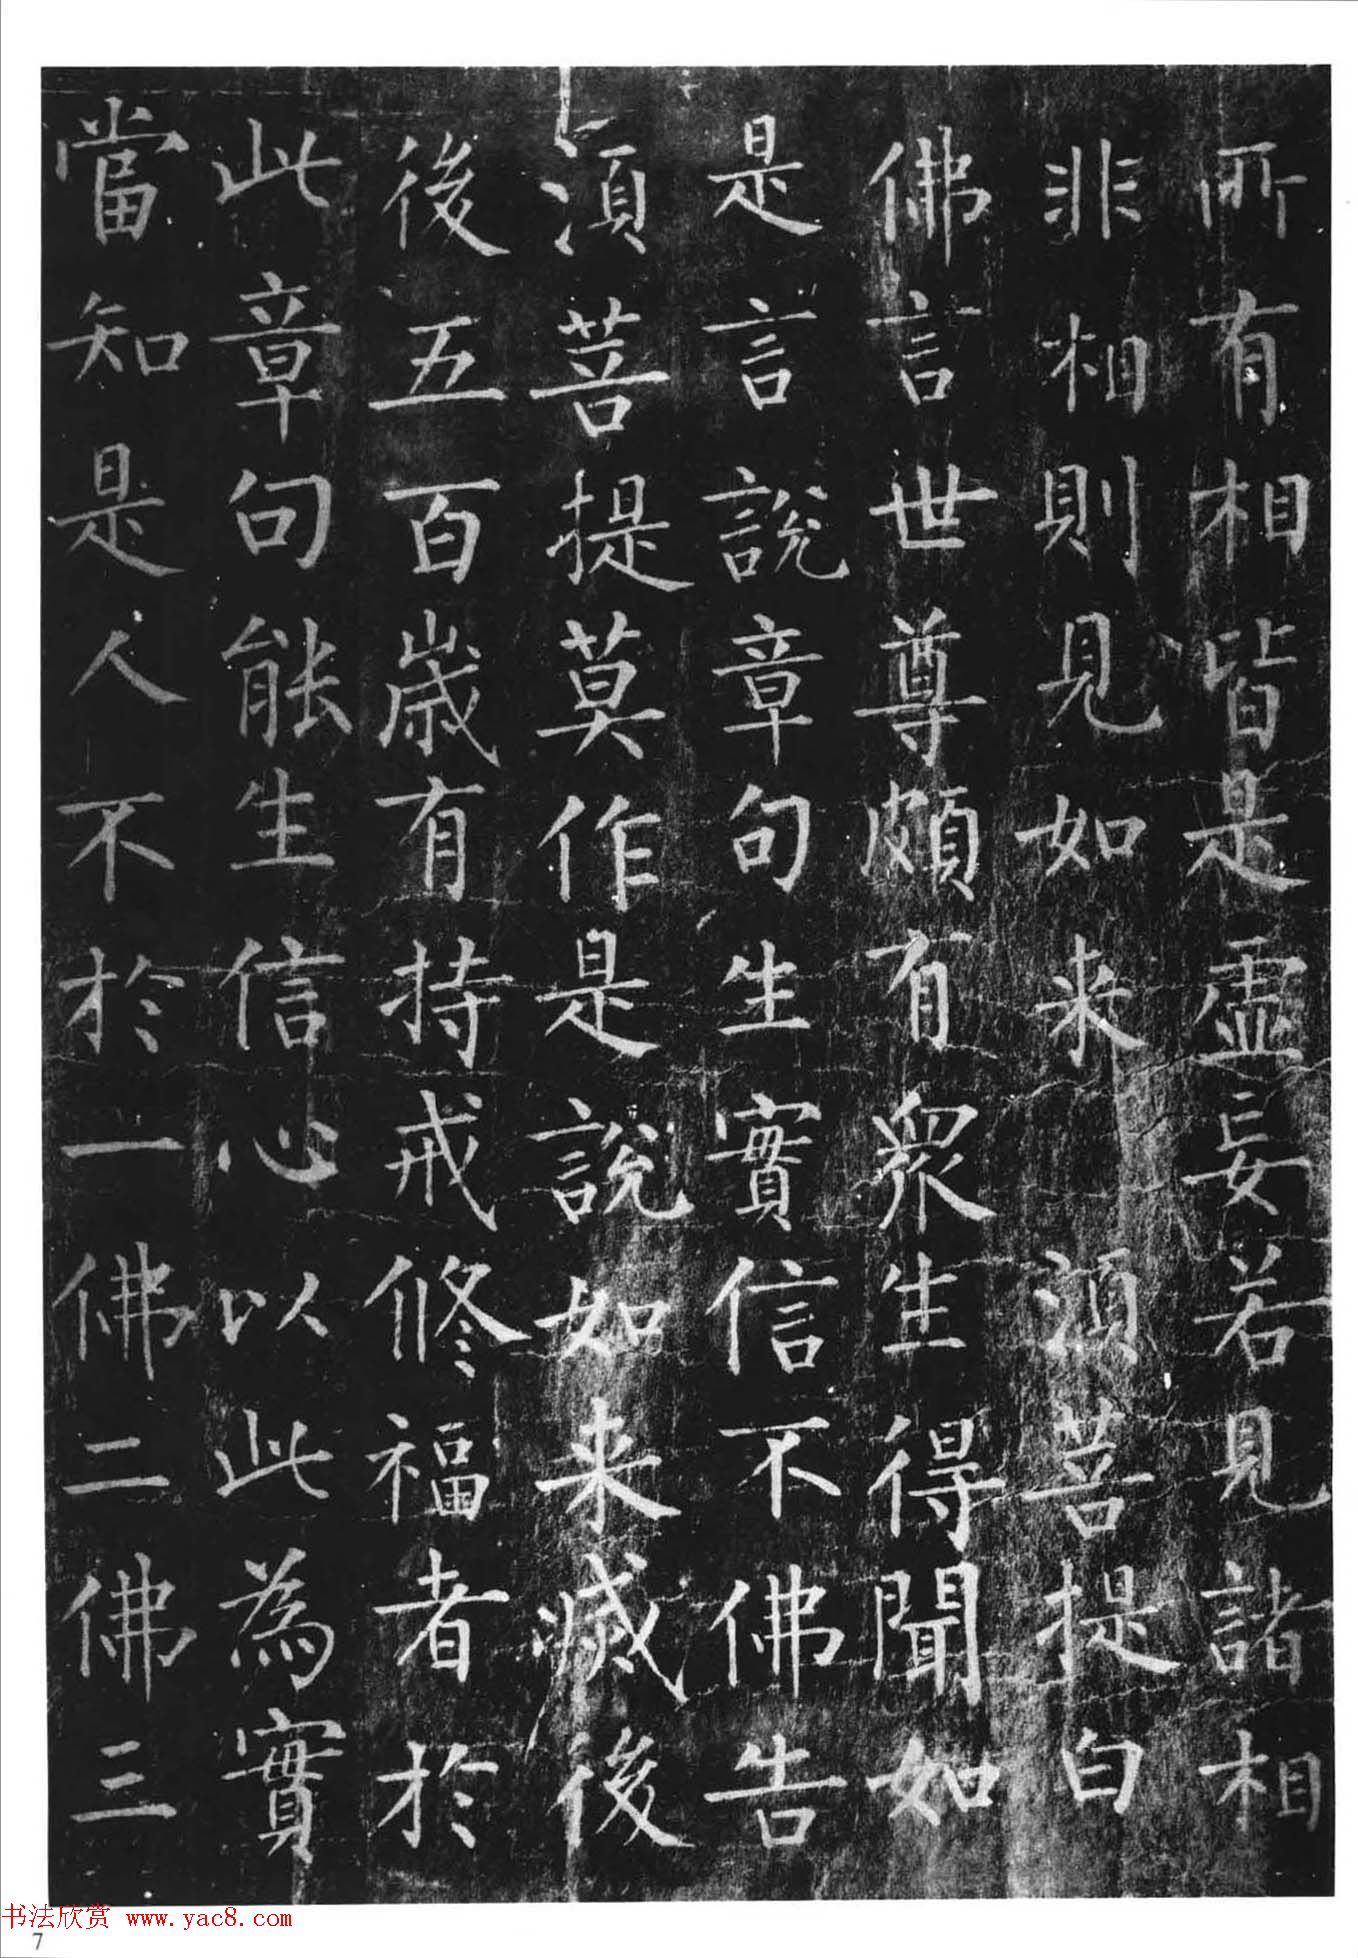 所有相皆是虛妄若見諸相
非相則見如来 須菩提白
佛言世尊頗有眾生得聞如
是言說章句生實信不佛告
須菩提莫作是說如来滅後
後五百歲有持戒修福者於
此章句能生信心以此為實
當知是人不於一佛二佛三
书法欣赏 www.yac8.com
7